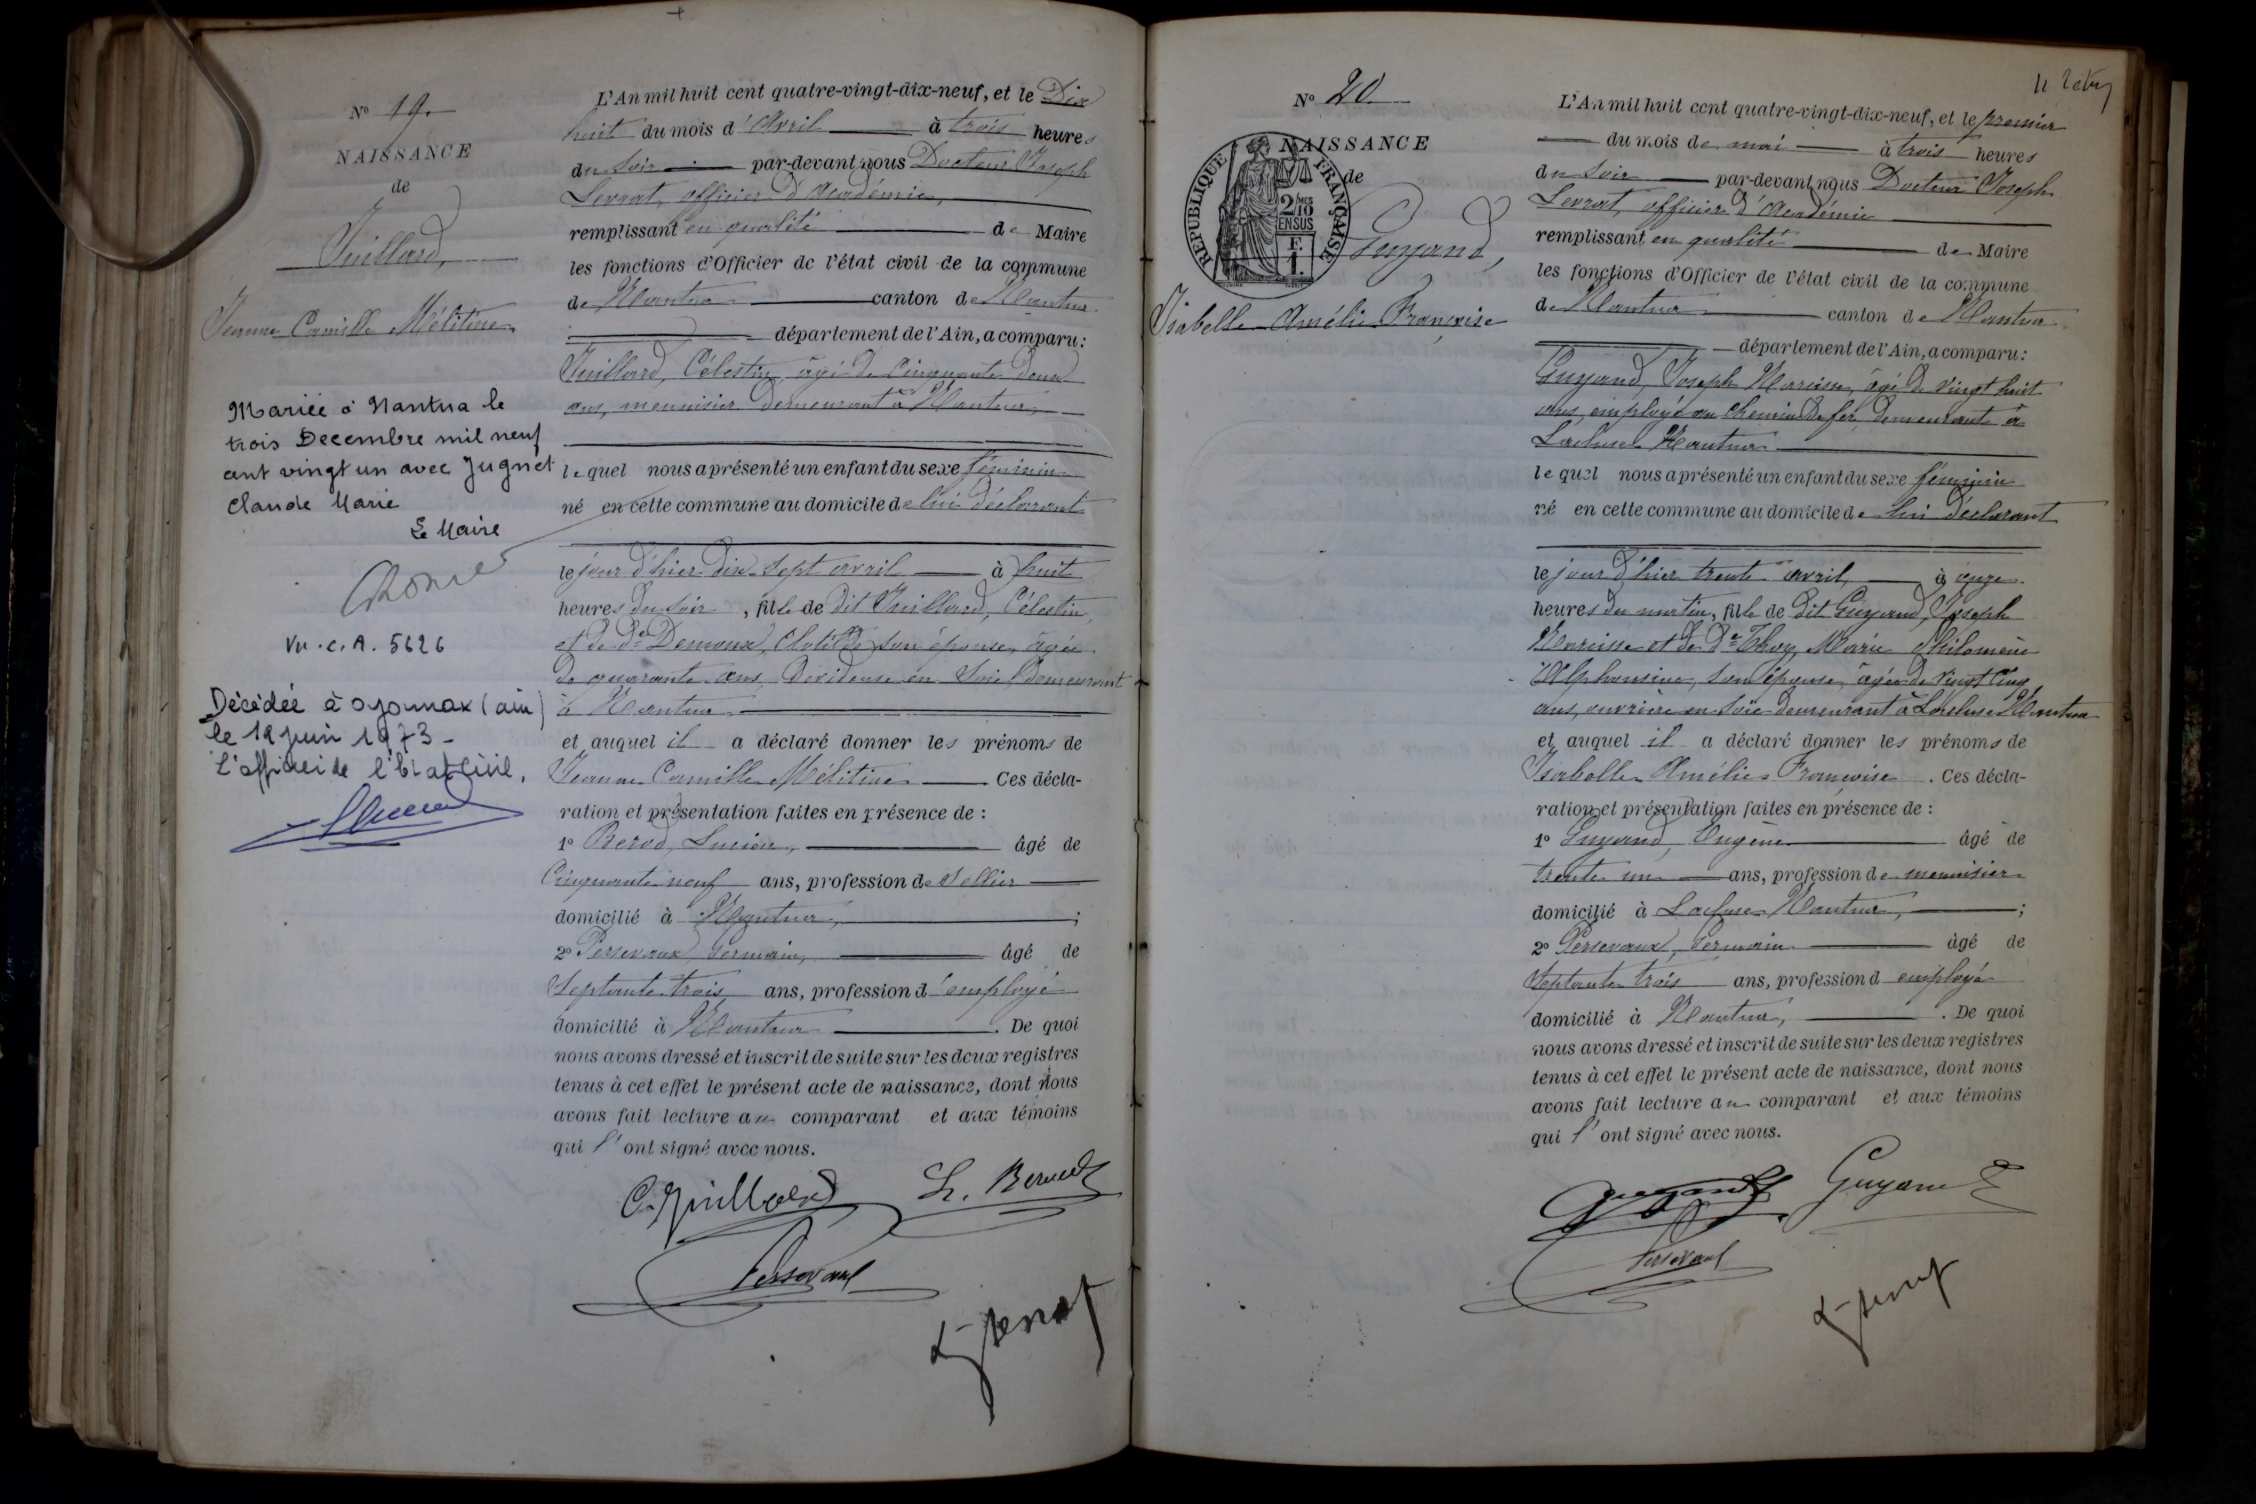 N° 19.
NAISSANCE
de
Juillard,
Jeanne Camille Mélitine
Mariée à Nantua le
trois Decembre mil neuf
cent vingt un avec Jugnet
Claude Marie
Le Maire
Vu. c. A. 5626
Décédée à Oyonnax (ain)
le 12 juin 1973 -
L'officier de l'Etat Civil,
L'An mil huit cent quatre-vingt-dix-neuf, et le Dix
huit du mois d'Avril à trois heures
du soir par-devant nous Docteur Joseph
Levrat, officier d'Académie,
remplissant en qualité de Maire
les fonctions d'Officier de l'état civil de la commune
de Nantua canton de Nantua
département de l'Ain, a comparu :
Juillard, Célestin, âgé de Cinquante deux
ans, menuisier demeurant à Nantua,
lequel nous a présenté un enfant du sexe féminin
né en cette commune au domicile de lui déclarant
le jour d'hier dix-sept avril à huit
heures du soir, fille de dit Juillard, Célestin,
et de de Clotilde son épouse, âgée
de quarante ans, Dévideuse en Soie, demeurant
à Nantua
et auquel il a déclaré donner les prénoms de
Jeanne Camille Mélitine Ces décla-
ration et présentation faites en présence de :
1° Berod, Lucien, âgé de
Cinquante neuf ans, profession de sellier
domicilié à Nantua, ;
2° Persevaux Germain, âgé de
Septante trois ans, profession d'employé
domicilié à Nantua . De quoi
nous avons dressé et inscrit de suite sur les deux registres
tenus à cet effet le présent acte de naissance, dont nous
avons fait lecture au comparant et aux témoins
qui l'ont signé avec nous.
C. Juillard L. Berod
Persevaux
4 2ebry
N° 20
NAISSANCE
de
REPUBLIQUE FRANÇAISE
2/10 MES
EN SUS
F.
1.
Guyand,
Isabelle Amélie Françoise
L'An mil huit cent quatre-vingt-dix-neuf, et le premier
du mois de mai à trois heures
du soir par-devant nous Docteur Joseph
Levrat, officier d'Académie
remplissant en qualité de Maire
les fonctions d'Officier de l'état civil de la commune
de Nantua canton de Nantua
département de l'Ain, a comparu :
Guyand, Joseph Narcisse, âgé de vingt huit
ans, employé au chemin de fer, demeurant à
Lacluse Nantua
lequel nous a présenté un enfant du sexe féminin
né en cette commune au domicile de lui déclarant
le jour d'hier trente avril, à onze
heures du matin, fille de dit Guyand, Joseph
Narcisse et de De Thoy, Marie Philomène
Alphonsine, son épouse, âgée de vingt cinq
ans, ouvrière en soie demeurant à Lacluse Nantua
et auquel il a déclaré donner les prénoms de
Isabelle Amélie Françoise . Ces décla-
ration et présentation faites en présence de :
1° Guyand, Eugène âgé de
trente un ans, profession de menuisier
domicilié à Lacluse Nantua, ;
2° Persevaux, Germain âgé de
Septante trois ans, profession d employé
domicilié à Nantua, . De quoi
nous avons dressé et inscrit de suite sur les deux registres
tenus à cet effet le présent acte de naissance, dont nous
avons fait lecture au comparant et aux témoins
qui l'ont signé avec nous.
Guyand Guyand E
Persevaux